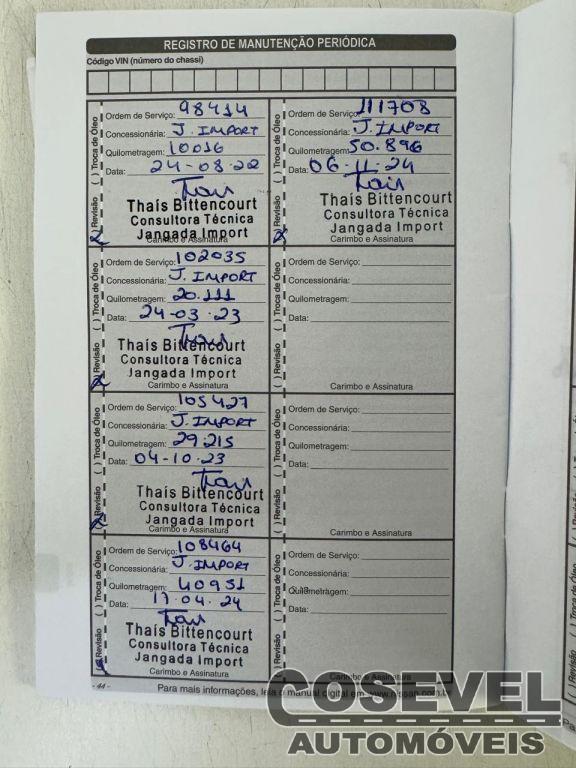 REGISTRO DE MANUTENÇÃO PERIÓDICA
Código VIN (número do chassi)
( ) Revisão ( ) Troca de Óleo
Ordem de Serviço: 98414
Concessionária: J. IMPORT
Quilometragem: 10016
Data: 24-08-22
Thaís Bittencourt
Consultora Técnica
Jangada Import
Carimbo e Assinatura
( ) Revisão ( ) Troca de Óleo
Ordem de Serviço: 102035
Concessionária: J. IMPORT
Quilometragem: 20.111
Data: 24-03-23
Thaís Bittencourt
Consultora Técnica
Jangada Import
Carimbo e Assinatura
( ) Revisão ( ) Troca de Óleo
Ordem de Serviço: 105427
Concessionária: J. IMPORT
Quilometragem: 29.215
Data: 04-10-23
Thaís Bittencourt
Consultora Técnica
Jangada Import
Carimbo e Assinatura
( ) Revisão ( ) Troca de Óleo
Ordem de Serviço: 108464
Concessionária: J. IMPORT
Quilometragem: 40951
Data: 17.04.24
Thaís Bittencourt
Consultora Técnica
Jangada Import
Carimbo e Assinatura
( ) Revisão ( ) Troca de Óleo
Ordem de Serviço: 111708
Concessionária: J. IMPORT
Quilometragem: 50.896
Data: 06-11-24
Thaís Bittencourt
Consultora Técnica
Jangada Import
Carimbo e Assinatura
( ) Revisão ( ) Troca de Óleo
Ordem de Serviço:
Concessionária:
Quilometragem:
Data:
Carimbo e Assinatura
( ) Revisão ( ) Troca de Óleo
Ordem de Serviço:
Concessionária:
Quilometragem:
Data:
Carimbo e Assinatura
( ) Revisão ( ) Troca de Óleo
Ordem de Serviço:
Concessionária:
Quilometragem:
Data:
Carimbo e Assinatura
- 44 -
Para mais informações, leia o manual digital em www.nissan.com.br
COSEVEL
AUTOMÓVEIS